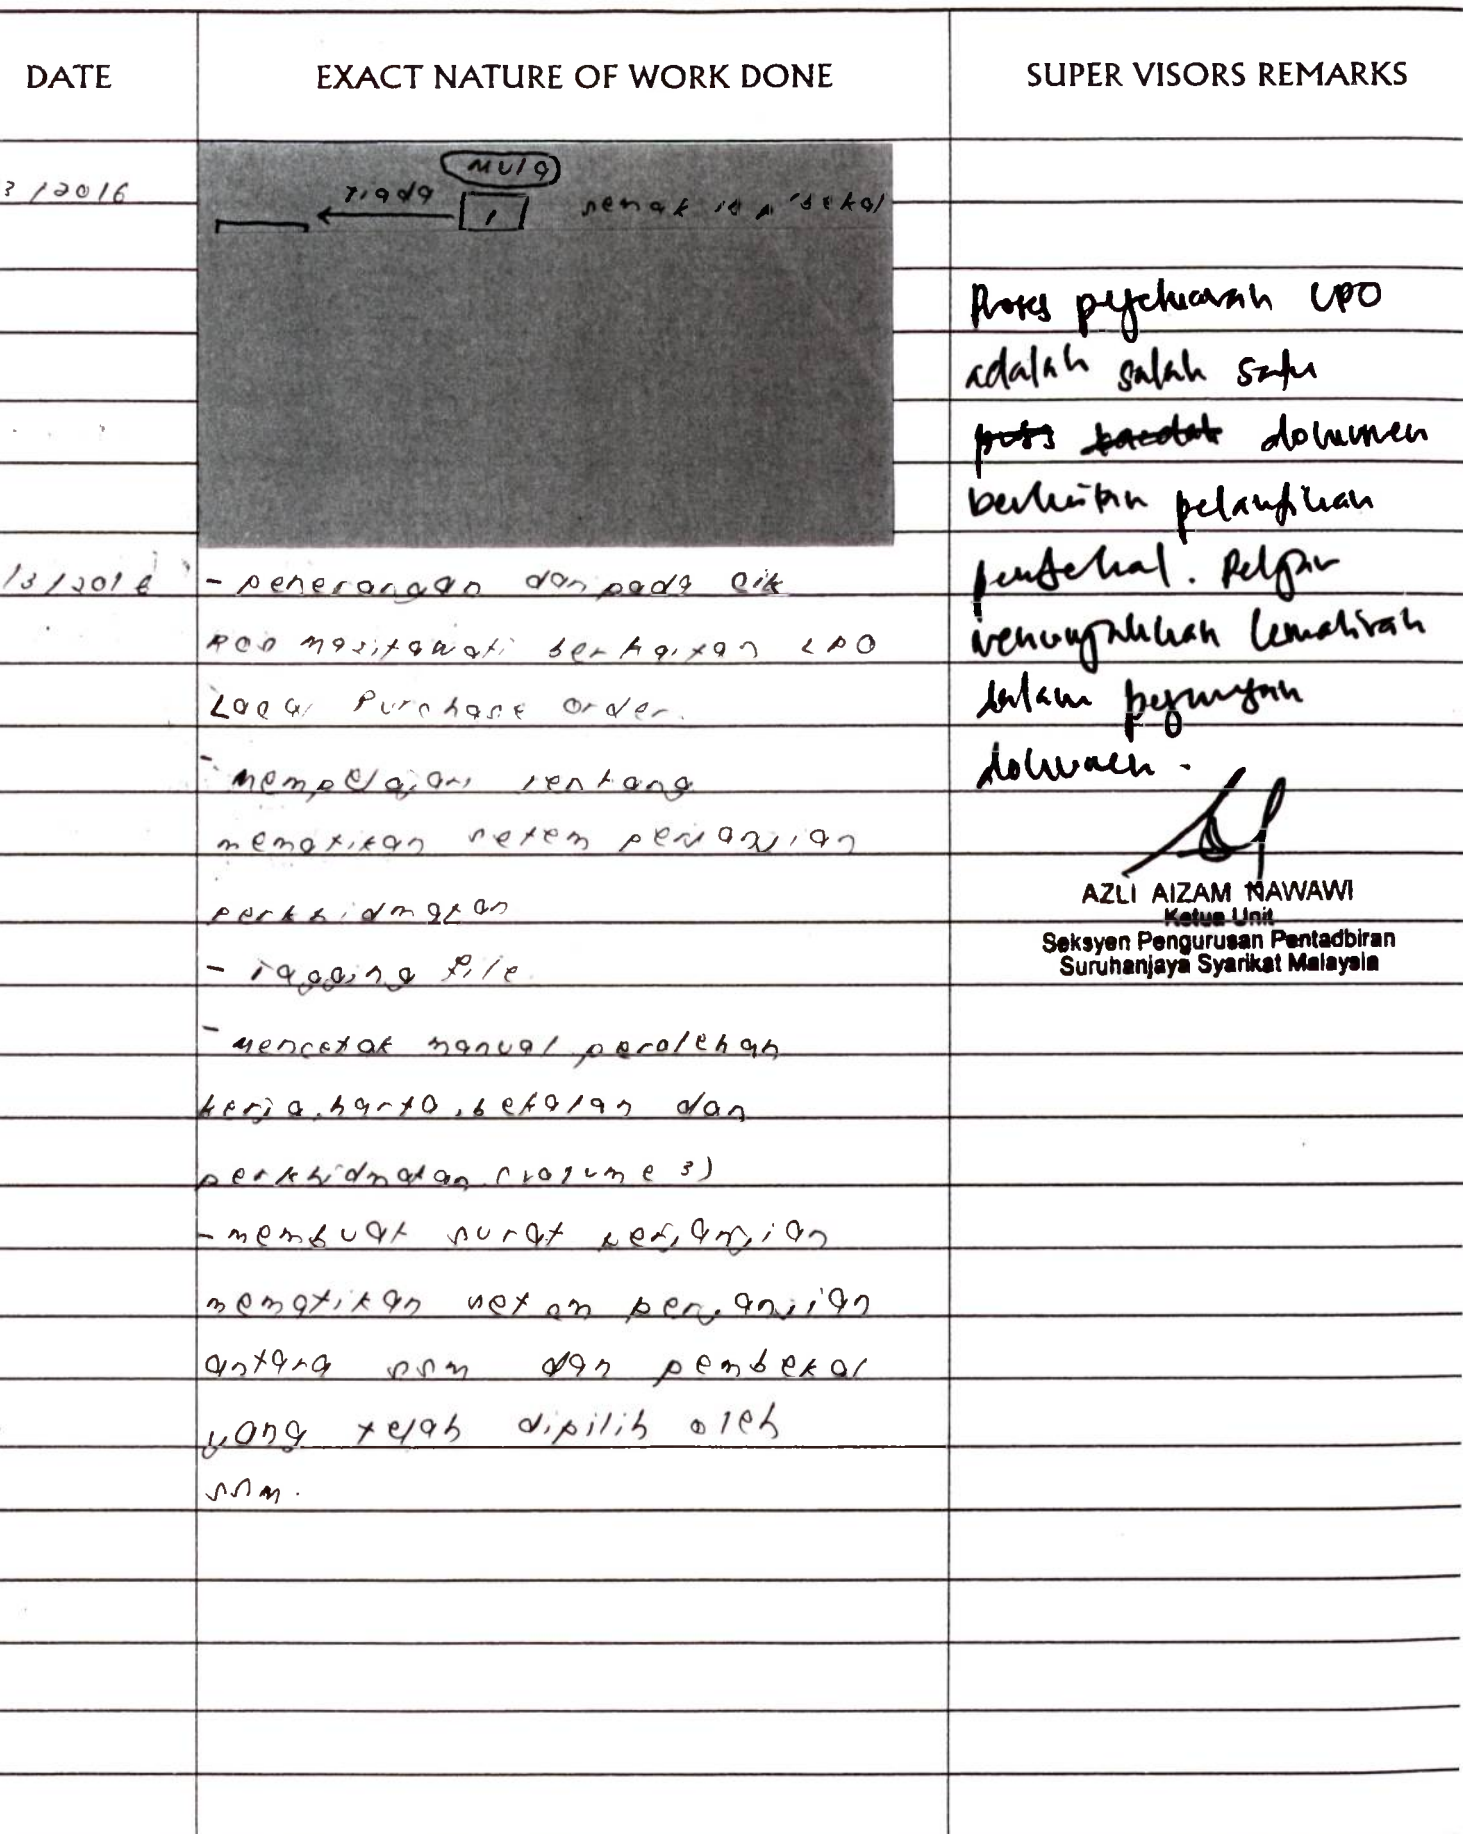 DATE
EXACT NATURE OF WORK DONE
SUPER VISORS REMARKS
3/2016
Mula
Tiada
1
semak
/3/2016
- penerangan daripada cik
masitawati berkaitan LPO
Local Purchase Order.
- Mempelajari tentang
mematikan setem perjanjian
perkhidmatan
- Tagging file
- Mencetak manual perolehan
kerja, harta, bekalan dan
perkhidmatan (volume 3)
- membuat surat perjanjian
mematikan setem perjanjian
antara ssm dan pembekal
yang telah dipilih oleh
ssm.
Proses pengeluaran LPO
adalah salah satu
dokumen
berkaitan pelantikan
pembekal. Pelajar
menunjukkan kemahiran
dalam
dokumen.
AZLI AIZAM NAWAWI
Ketua Unit
Seksyen Pengurusan Pentadbiran
Suruhanjaya Syarikat Malaysia